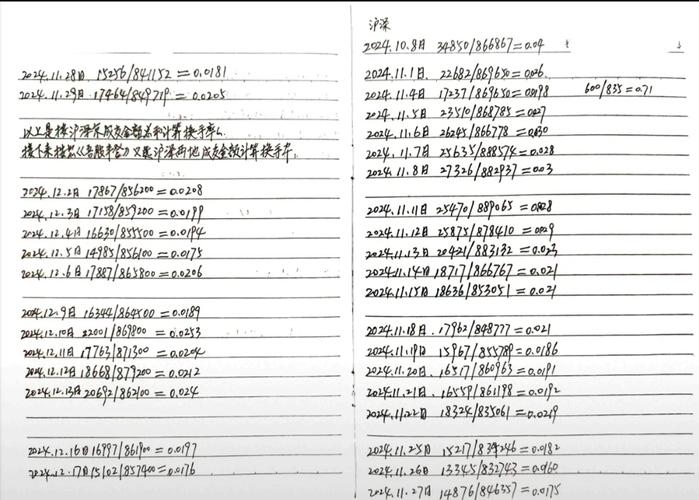 2024.11.28日 15256/841152=0.0181
2024.11.29日 17464/849719=0.0205
以上是按沪深京成交金额总和计算换手率。
2024.12.2日 17867/856200=0.0208
2024.12.3日 17158/859200=0.0199
2024.12.4日 16630/855500=0.0194
2024.12.5日 14985/856100=0.0175
2024.12.6日 17887/865800=0.0206
2024.12.9日 16344/864500=0.0189
2024.12.10日 22001/869800=0.0253
2024.12.11日 17763/871300=0.0204
2024.12.12日 18668/879200=0.0212
2024.12.13日 20692/862100=0.024
2024.12.16日 16997/861900=0.0197
2024.12.17日 15102/857400=0.0176
沪深
2024.10.8日 34850/866867=0.04
2024.11.1日 22682/869650=0.026
2024.11.4日 17237/869650=0.0198 600/835=0.71
2024.11.5日 23510/868785=0.027
2024.11.6日 26245/866778=0.030
2024.11.7日 25635/888574=0.028
2024.11.8日 27326/882937=0.03
2024.11.11日 25470/889065=0.028
2024.11.12日 25875/878410=0.029
2024.11.13日 20421/883132=0.023
2024.11.14日 18717/866767=0.021
2024.11.15日 18636/853051=0.021
2024.11.18日 17962/848777=0.021
2024.11.19日 15967/855789=0.0186
2024.11.20日 16517/860963=0.0191
2024.11.21日 16559/861198=0.0192
2024.11.22日 18324/835061=0.0219
2024.11.25日 15217/834246=0.0182
2024.11.26日 13345/832743=0.0160
2024.11.27日 14876/846357=0.0175